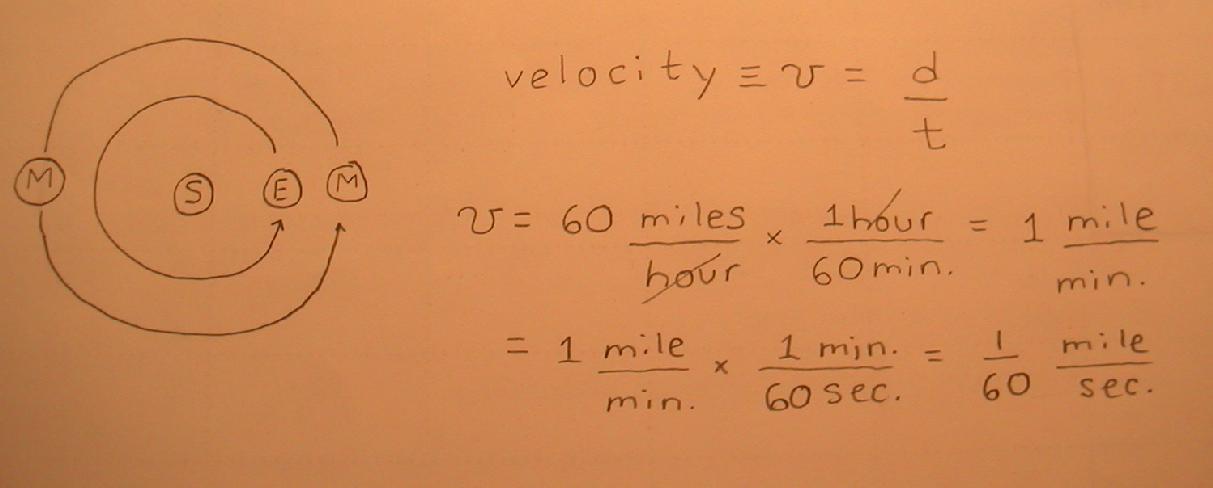 M S E M
velocity ≡ v = d/t
v = 60 miles/hour × 1 hour/60 min. = 1 mile/min.
= 1 mile/min. × 1 min./60 sec. = 1/60 mile/sec.